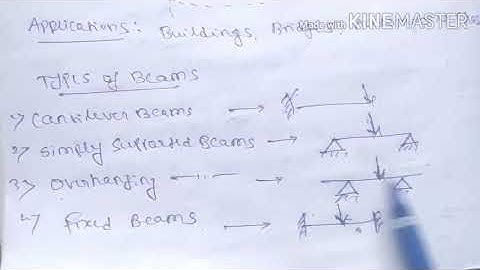 Applications: Buildings, Bridges
Made with KINEMASTER
Types of Beams
1) Cantilever Beams →
2) Simply Supported Beams →
3) Overhanging —"— →
4) Fixed Beams →